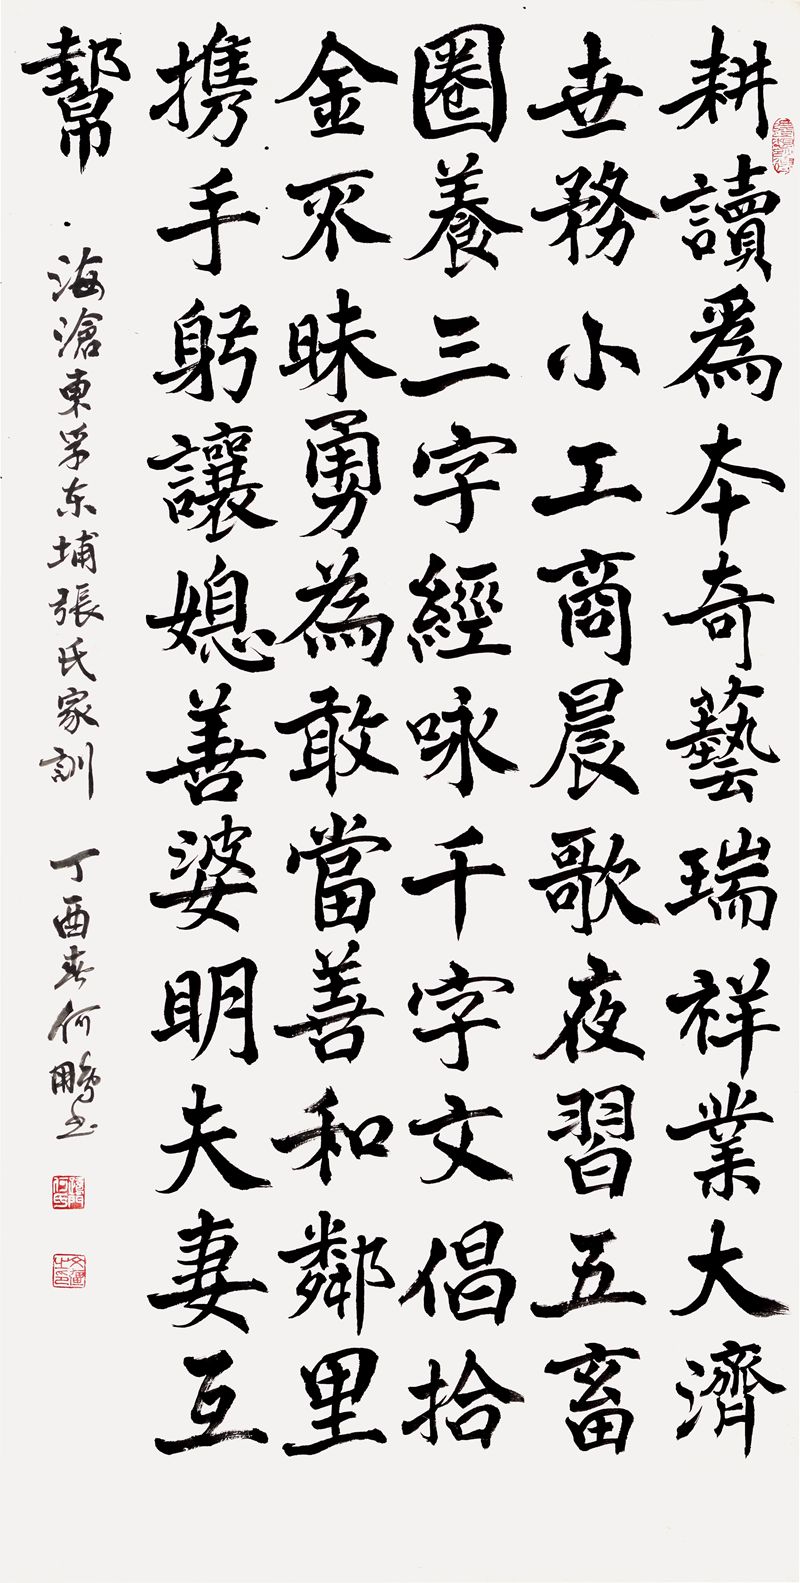 耕讀爲本奇藝瑞祥業大濟
世務小工商晨歌夜習五畜
圈養三字經咏千字文倡拾
金不昧勇為敢當善和鄰里
携手躬讓媳善婆明夫妻互
幫
海滄東孚东埔張氏家訓 丁酉春何鵬书